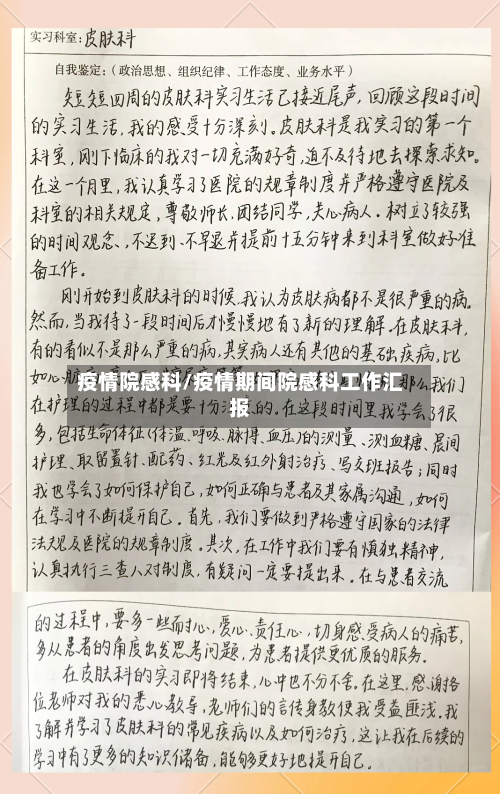 实习科室:皮肤科
自我鉴定:(政治思想、组织纪律、工作态度、业务水平)
短短四周的皮肤科实习生活已接近尾声,回顾这段时间
的实习生活,我的感受十分深刻。皮肤科是我实习的第一个
科室,刚下临床的我对一切充满好奇,迫不及待地去探索求知。
在这一个月里,我认真学习了医院的规章制度并严格遵守医院及
科室的相关规定,尊敬师长,团结同学,关心病人。树立了较强
的时间观念,不迟到、不早退并提前十五分钟来到科室做好准
备工作。
刚开始到皮肤科的时候,我认为皮肤病都不是很严重的病。
然而,当我待了一段时间后才慢慢地有了新的理解。在皮肤科,
有的看似不是那么严重的病,其实病人还有其他的基础疾病,比
如心脏 那么我们
疫情院感科/疫情期间院感科工作汇
报
在护理的过程中都是要十分 的。在这段时间里我学会了很
多,包括生命体征(体温、呼吸、脉搏、血压)的测量、测血糖、晨间
护理、取留置针、配药、红光及红外射治疗、写交班报告;同时
我也学会了如何保护自己,如何正确与患者及其家属沟通,如何
在学习中不断提升自己。首先,我们要做到严格遵守国家的法律
法规及医院的规章制度。其次,在工作中我们要有慎独精神,
认真执行三查八对制度,有疑问一定要提出来。在与患者交流
的过程中,要多一些耐心,爱心,责任心,切身感受病人的痛苦,
多从患者的角度出发思考问题,为患者提供更优质的服务。
在皮肤科的实习即将结束,心中也不分不舍。在这里,感谢各
位老师对我的悉心教导,老师们的言传身教使我受益匪浅。我
了解并学习了皮肤科的常见疾病以及如何治疗,这让我在后续的
学习中有了更多的知识储备,能够更好地提升自己。